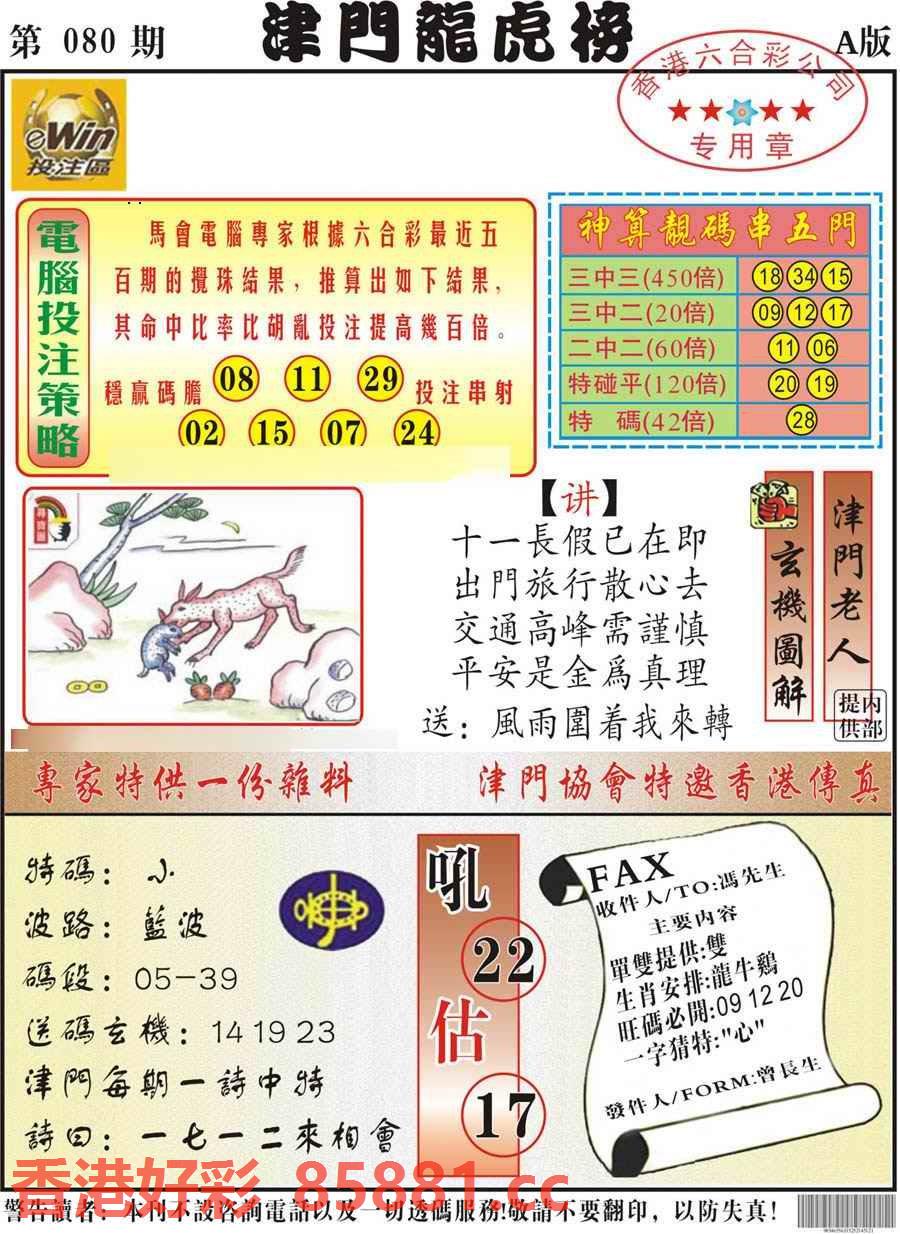 第 080 期
津門龍虎榜
A版
香港六合彩公司
专用章
eWin
投注區
電腦投注策略
馬會電腦專家根據六合彩最近五
百期的攪珠結果，推算出如下結果，
其命中比率比胡亂投注提高幾百倍。
穩贏碼膽 08 11 29 投注串射
02 15 07 24
神算靚碼串五門
三中三(450倍) 18 34 15
三中二(20倍) 09 12 17
二中二(60倍) 11 06
特碰平(120倍) 20 19
特 碼(42倍) 28
尋寶圖
【讲】
十一長假已在即
出門旅行散心去
交通高峰需謹慎
平安是金爲真理
送：風雨圍着我來轉
玄機圖解
津門老人
内部提供
專家特供一份雜料
津門協會特邀香港傳真
特碼：小
波路：藍波
碼段：05-39
送碼玄機：14 19 23
津門每期一詩中特
詩曰：一七一二來相會
吼
22
估
17
FAX
收件人/TO:馮先生
主要内容
單雙提供:雙
生肖安排:龍牛鷄
旺碼必開:09 12 20
一字猜特:"心"
發件人/FORM:曾長生
香港好彩 85881.cc
警告讀者：本刊不設咨詢電話以及一切透碼服務!敬請不要翻印，以防失真!